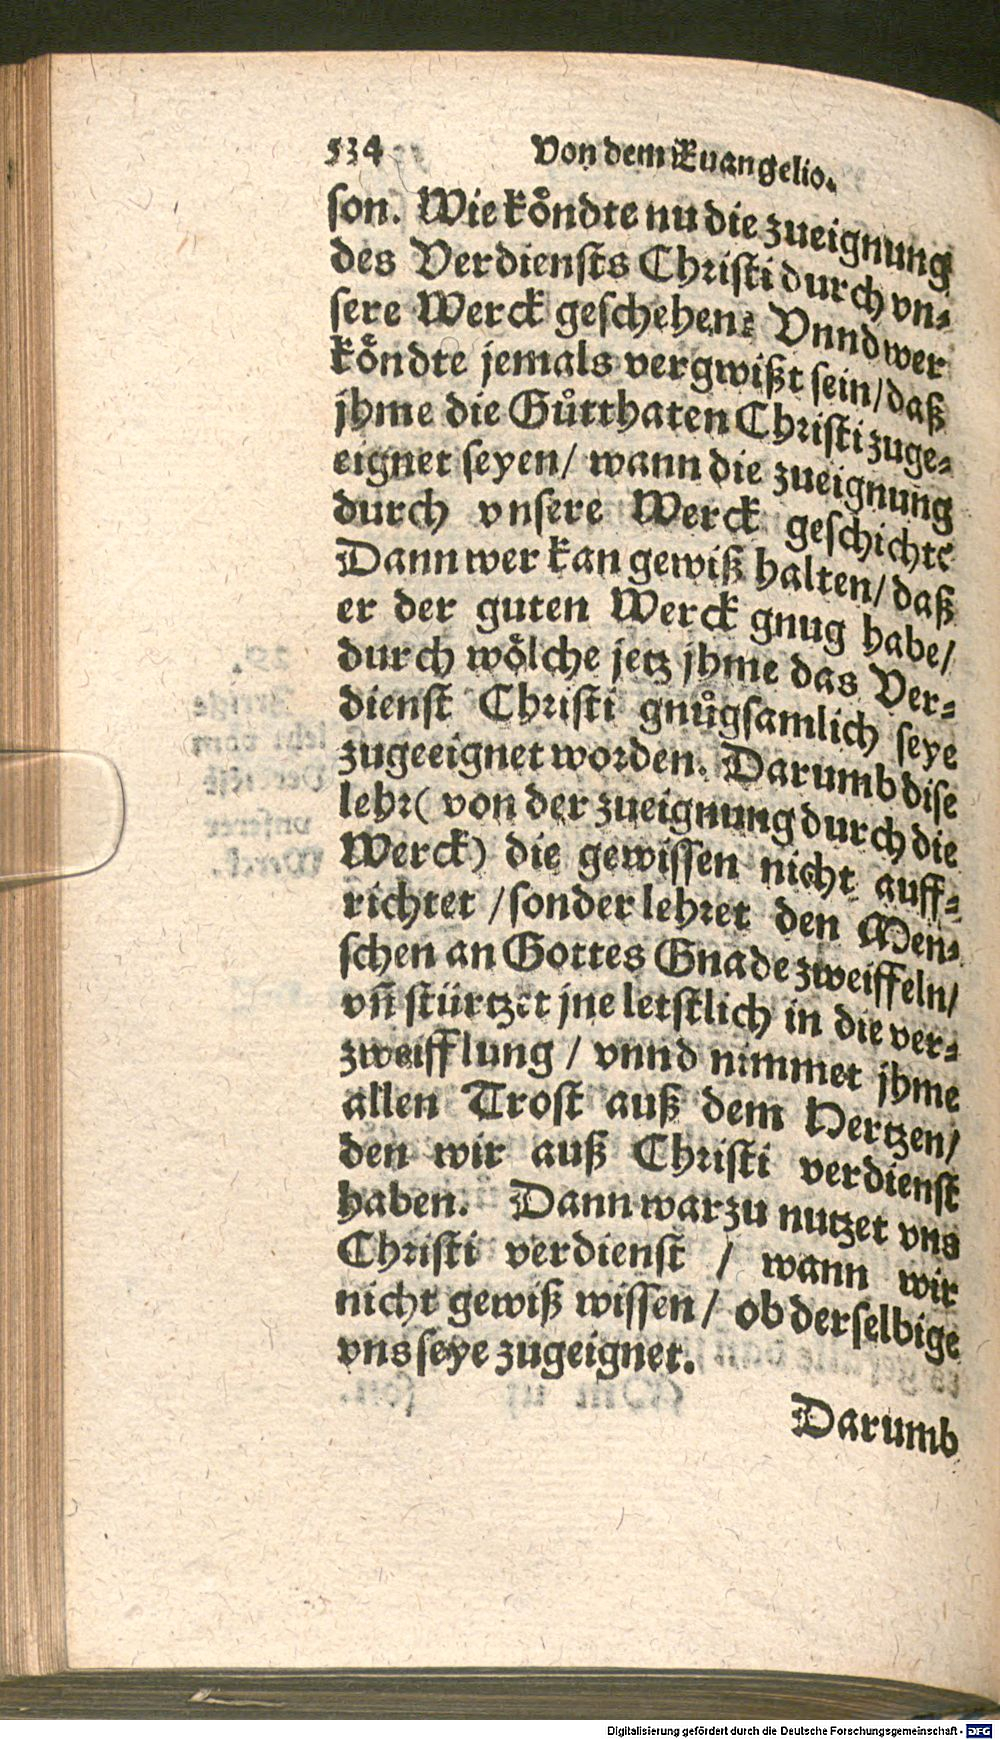 534 Von dem Euangelio.
son. Wie koͤndte nu die zueignung
des Verdiensts Christi durch vn⸗
sere Werck geschehen? Vnnd wer
koͤndte jemals vergwißt sein/ daß
jhme die Guͤtthaten Christi zuge⸗
eignet seyen/ wann die zueignung
durch vnsere Werck geschichte
Dann wer kan gewiß halten/ daß
er der guten Werck gnug habe/
durch woͤlche jetz jhme das Ver⸗
dienst Christi gnuͤgsamlich seye
zugeeignet worden. Darumb dise
lehr ( von der zueignung durch die
Werck) die gewissen nicht auff⸗
richtet / sonder lehret den Men⸗
schen an Gottes Gnade zweiffeln/
vñ stürtzet jne letstlich in die ver⸗
zweifflung / vnnd nimmet jhme
allen Trost auß dem Hertzen/
den wir auß Christi verdienst
haben. Dann warzu nutzet vns
Christi verdienst / wann wir
nicht gewiß wissen/ ob derselbige
vns seye zugeignet.
Darumb
Digitalisierung gefördert durch die Deutsche Forschungsgemeinschaft - DFG